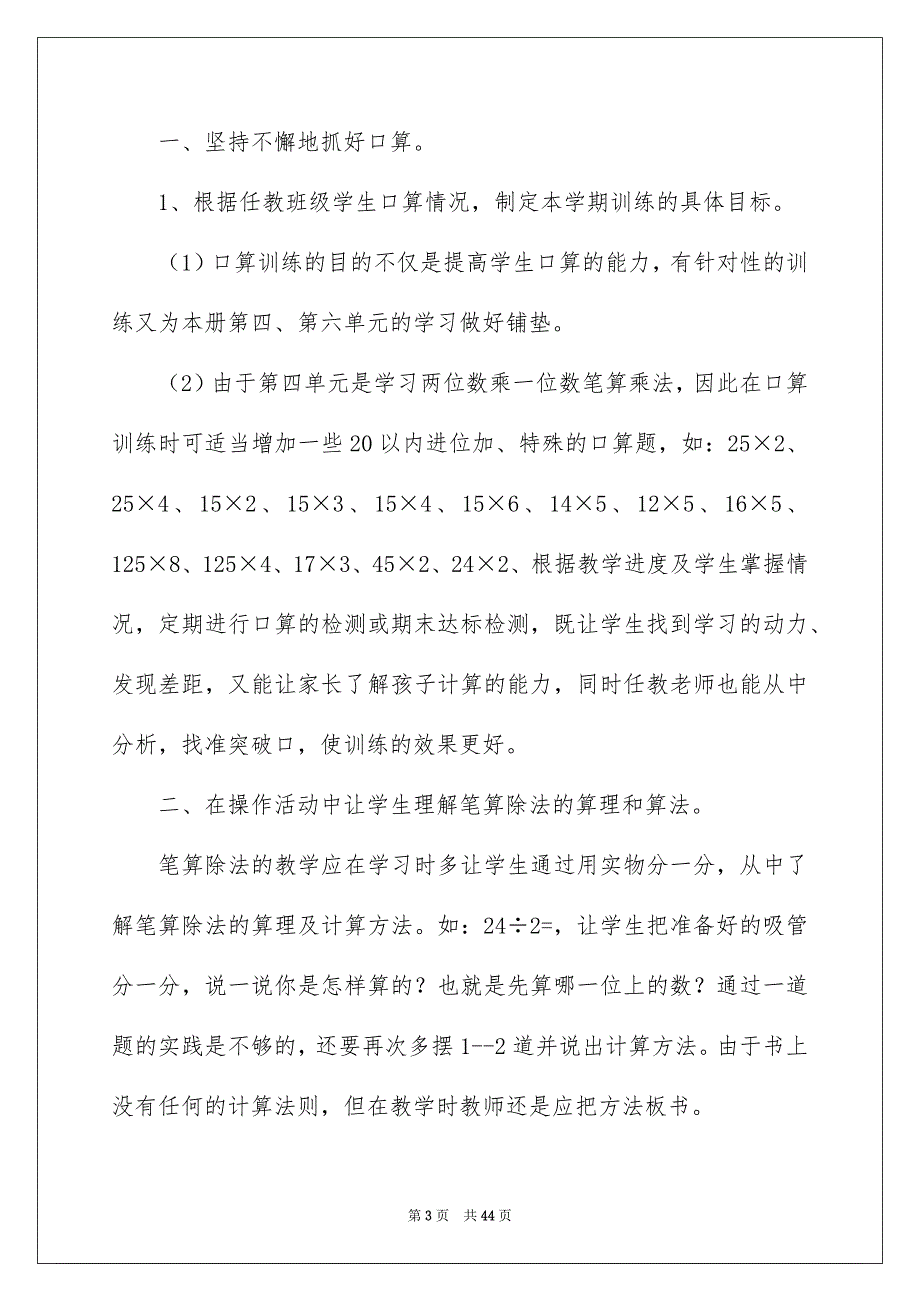 一、坚持不懈地抓好口算。
1、根据任教班级学生口算情况，制定本学期训练的具体目标。
（1）口算训练的目的不仅是提高学生口算的能力，有针对性的训
练又为本册第四、第六单元的学习做好铺垫。
（2）由于第四单元是学习两位数乘一位数笔算乘法，因此在口算
训练时可适当增加一些 20 以内进位加、特殊的口算题，如：25×2、
25×4、15×2、15×3、15×4、15×6、14×5、12×5、16×5、
125×8、125×4、17×3、45×2、24×2、根据教学进度及学生掌握情
况，定期进行口算的检测或期末达标检测，既让学生找到学习的动力、
发现差距，又能让家长了解孩子计算的能力，同时任教老师也能从中
分析，找准突破口，使训练的效果更好。
二、在操作活动中让学生理解笔算除法的算理和算法。
笔算除法的教学应在学习时多让学生通过用实物分一分，从中了
解笔算除法的算理及计算方法。如：24÷2=，让学生把准备好的吸管
分一分，说一说你是怎样算的？也就是先算哪一位上的数？通过一道
题的实践是不够的，还要再次多摆 1--2 道并说出计算方法。由于书上
没有任何的计算法则，但在教学时教师还是应把方法板书。
第 3 页 共 44 页